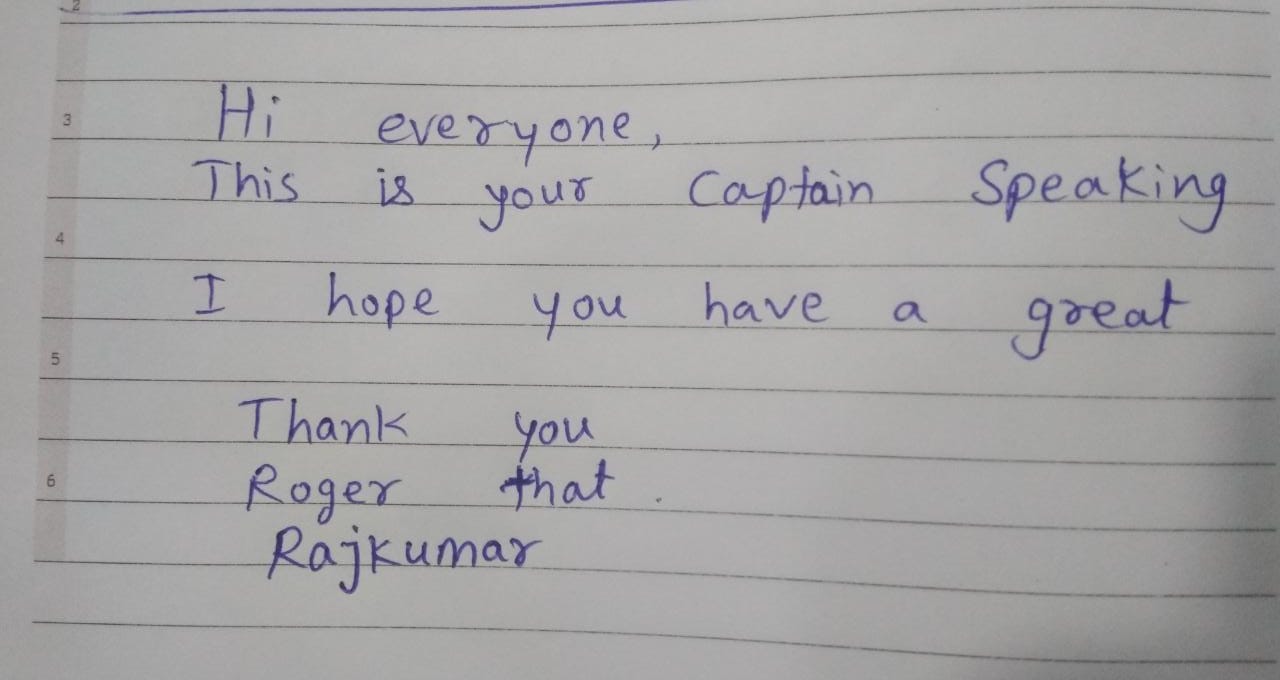 2
3
Hi everyone,
This is your Captain Speaking
4
I hope you have a great
5
Thank you
6
Roger that.
Rajkumar